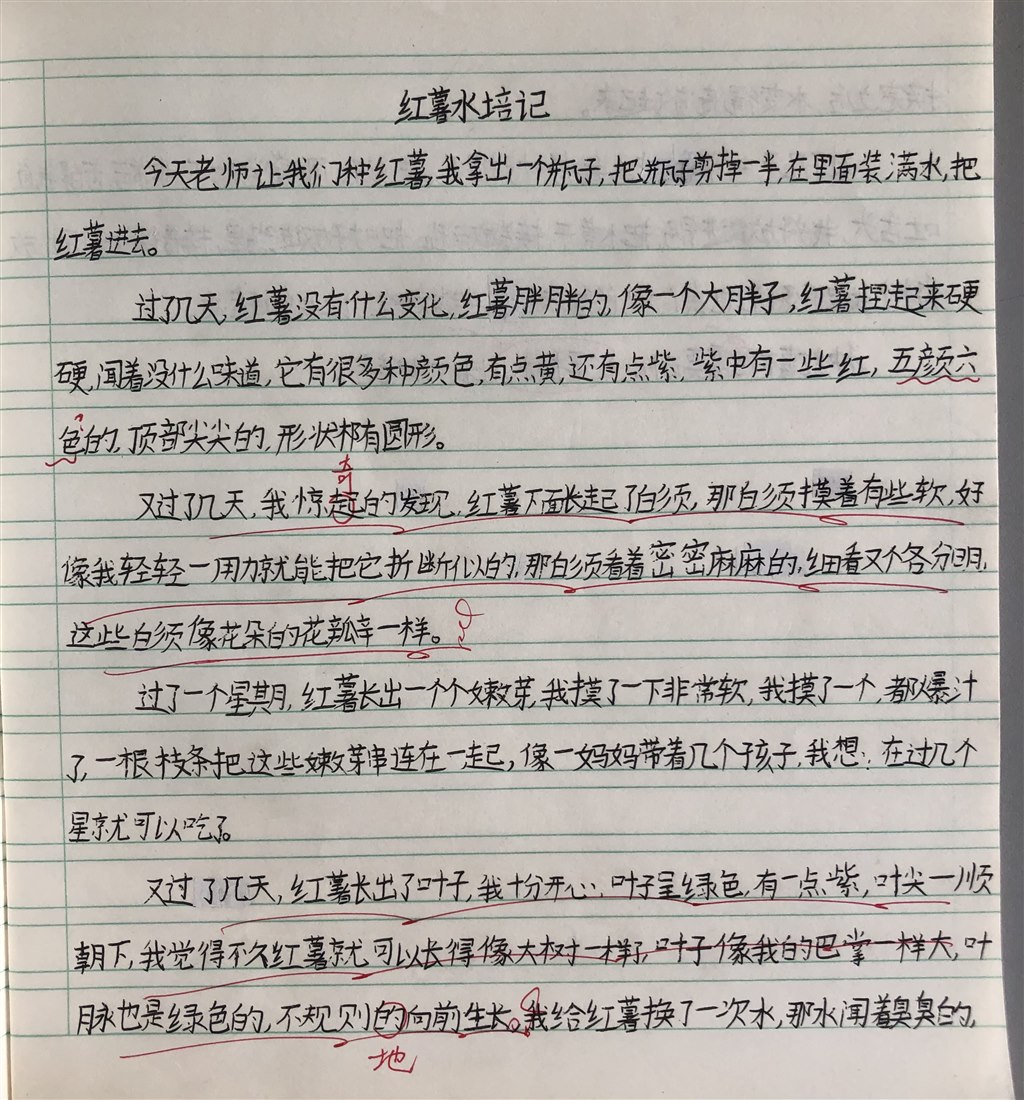 红薯水培记
今天老师让我们种红薯,我拿出一个瓶子,把瓶子剪掉一半,在里面装满水,把
红薯进去。
过了几天,红薯没有什么变化,红薯胖胖的,像一个大胖子,红薯捏起来硬
硬,闻着没什么味道,它有很多种颜色,有点黄,还有点紫,紫中有一些红,五颜六
色的,顶部尖尖的,形状椰有圆形。
奇
又过了几天,我惊起的发现,红薯下面长起了白须,那白须摸着有些软,好
像我轻轻一用力就能把它折断似的,那白须看着密密麻麻的,细看又个各分明,
这些白须像花朵的花瓣一样。
过了一个星期,红薯长出一个个嫩芽,我摸了一下非常软,我摸了一个,都爆汁
了,一根枝条把这些嫩芽串连在一起,像一妈妈带着几个孩子,我想:在过几个
星就可以吃了。
又过了几天,红薯长出了叶子,我十分开心,叶子呈绿色,有一点紫,叶尖一顺
朝下,我觉得不久红薯就可以长得像大树一样了,叶子像我的巴掌一样大,叶
脉也是绿色的,不规则的向前生长。我给红薯换了一次水,那水闻着臭臭的,
地